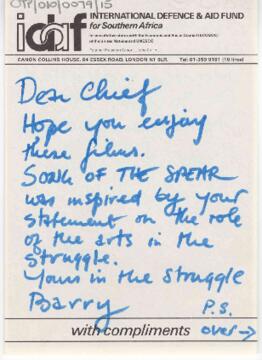 OTP/010/0079/15
idaf
INTERNATIONAL DEFENCE & AID FUND
for Southern Africa
CANON COLLINS HOUSE, 64 ESSEX ROAD, LONDON N1 8LR. Tel: 01-359 9181 (10 lines)
Dear Chief
Hope you enjoy
these films.
SONG OF THE SPEAR
was inspired by your
statement on the role
of the arts in the
struggle.
Yours in the Struggle
Barry P.S.
with compliments over →